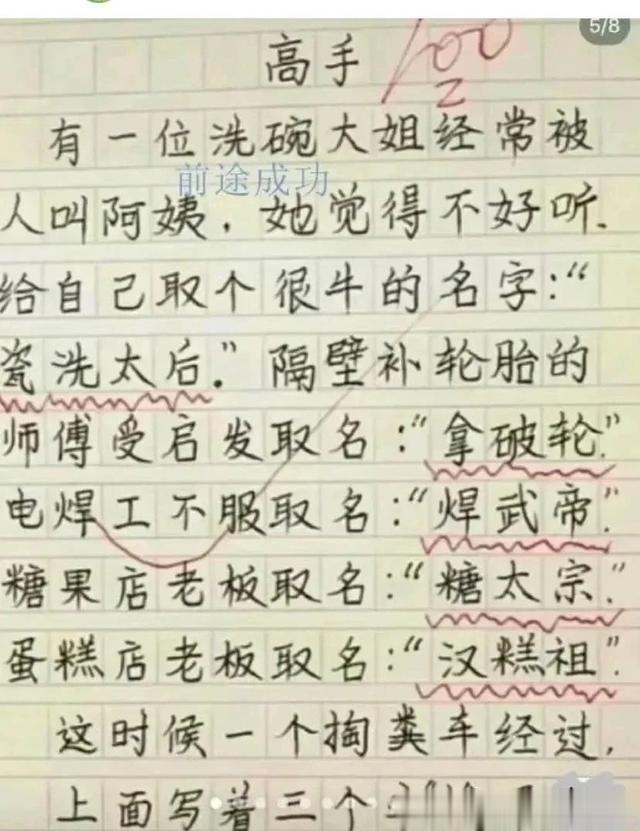 5/8
高手
100
有一位洗碗大姐经常被
前途成功
人叫阿姨,她觉得不好听.
给自己取个很牛的名字:“
瓷洗太后.”隔壁补轮胎的
师傅受启发取名:“拿破轮.”
电焊工不服取名:“焊武帝”.
糖果店老板取名:“糖太宗.”
蛋糕店老板取名:“汉糕祖”.
这时候一个掏粪车经过,
上面写着三个